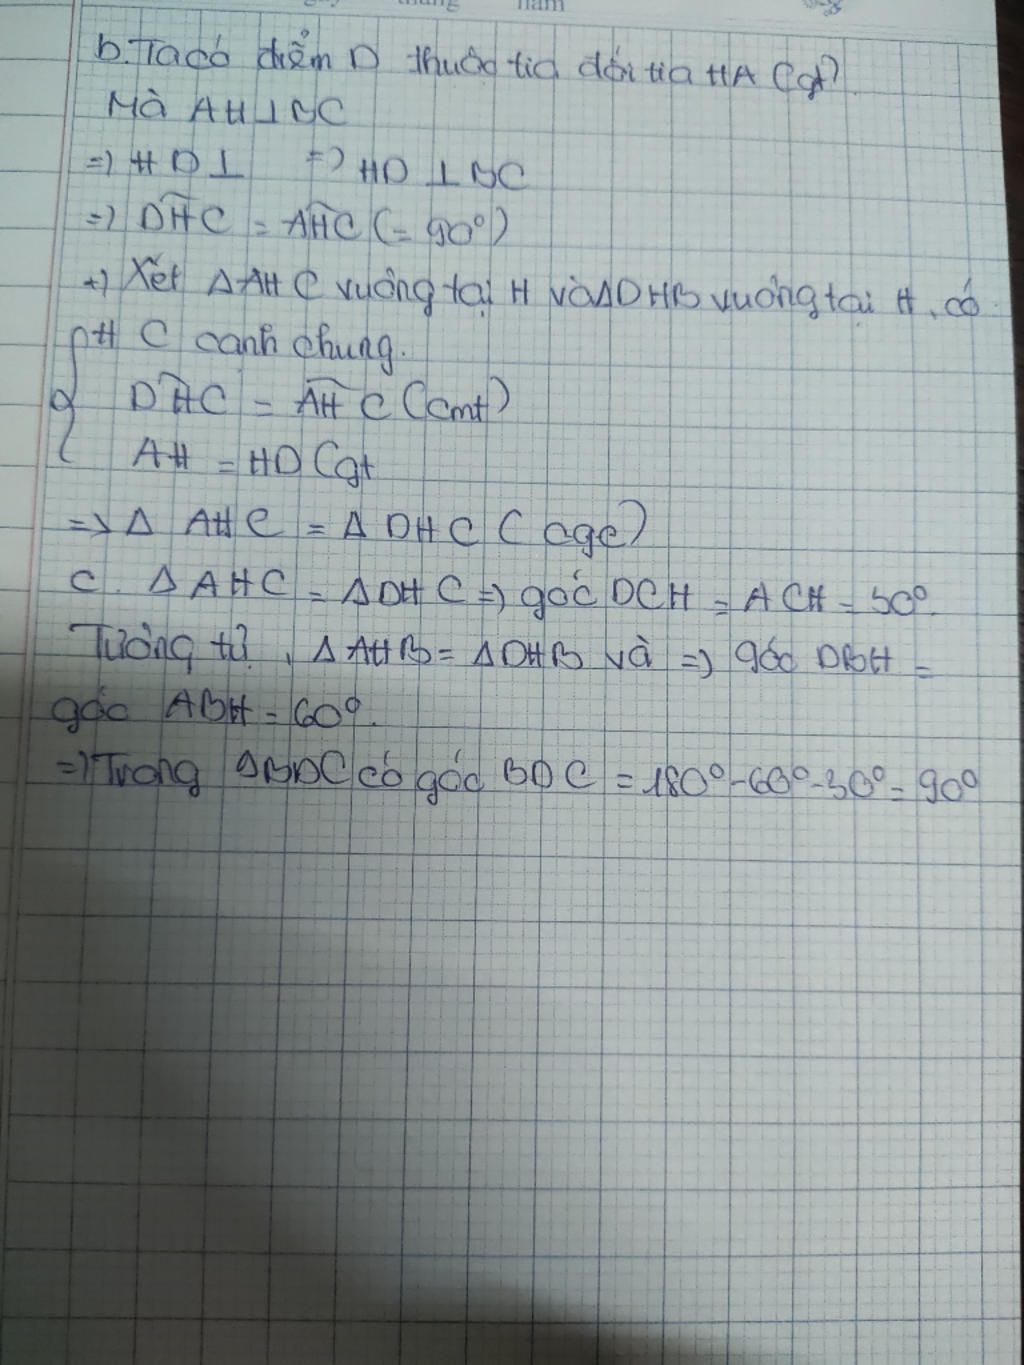 tháng năm
b. Ta có điểm D thuộc tia đối tia HA (gt)
Mà AH ⊥ BC
=> HD ⊥ => HD ⊥ BC
=> DHC = AHC (= 90°)
+) Xét Δ AHC vuông tại H và Δ DHB vuông tại H, có
H C cạnh chung.
DHC = AHC (cmt)
AH = HD (gt
=> Δ AHC = Δ DHC (cgc)
c. Δ AHC = Δ DHC => góc DCH = ACH = 30°.
Tương tự, Δ AHB = Δ DHB và => góc DBH =
góc ABH = 60°.
=> Trong Δ BDC có góc BDC = 180° - 60° - 30° = 90°